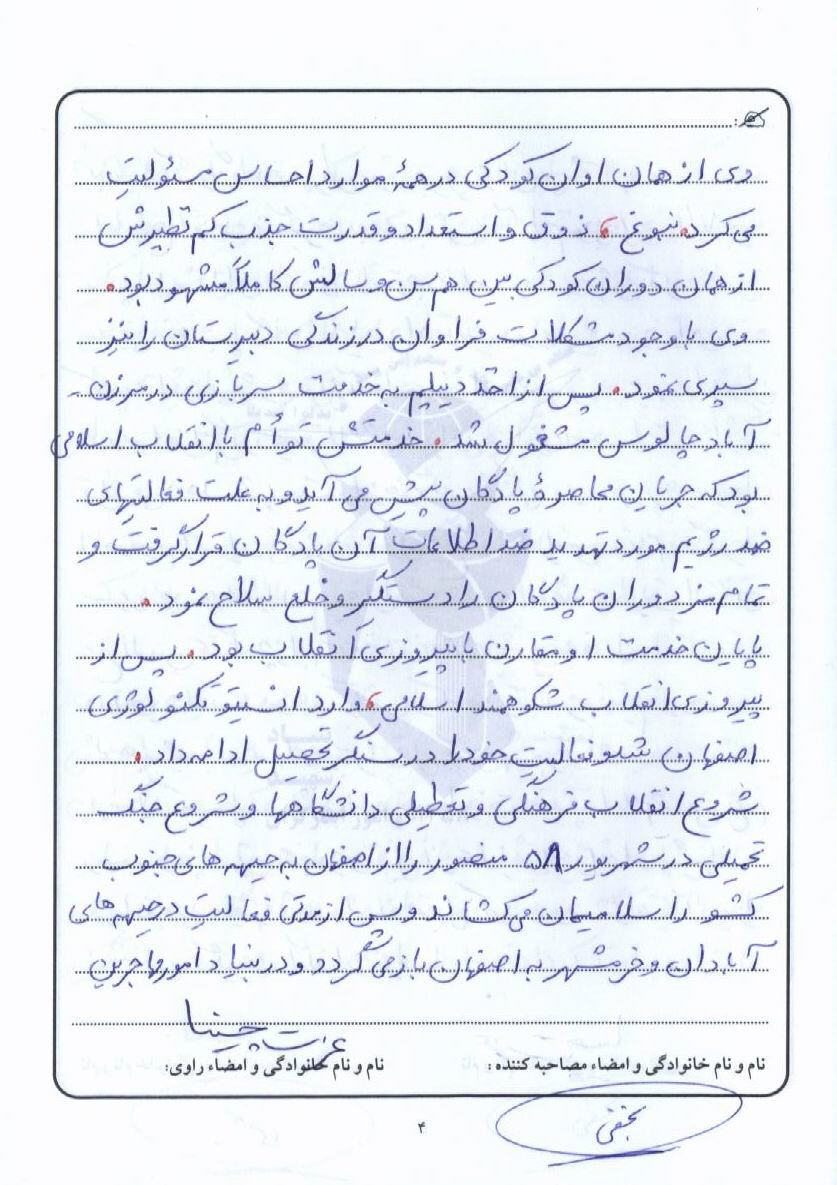 وی از همان اوان کودکی در همۀ موارد احساس مسئولیت
می کرد. نبوغ ، ذوق و استعداد و قدرت جذب کم نظیرش
از همان دوران کودکی بین هم سن و سالش کاملاً مشهود بود.
وی با وجود مشکلات فراوان در زندگی دبیرستان را نیز
سپری نمود. پس از اخذ دیپلم به خدمت سربازی در مرزن-
آباد چالوس مشغول شد. خدمتش توأم با انقلاب اسلامی
بود که جریان محاصرۀ پادگان پیش می آید و به علت فعالیتهای
ضد رژیم مورد تهدید ضد اطلاعات آن پادگان قرار گرفت و
تمام مزدوران پادگان را دستگیر و خلع سلاح نمود.
پایان خدمت او مقارن با پیروزی انقلاب بود. پس از
پیروزی انقلاب شکوهمند اسلامی ، وارد انسیتو تکنولوژی
اصفهان شد و فعالیت خود را در سنگر تحصیل ادامه داد.
شروع انقلاب فرهنگی و تعطیلی دانشگاهها و شروع جنگ
تحمیلی در شهریور ۵۸ منصور را از اصفهان به جبهه های جنوب
کشور اسلامیمان می کشاند و پس از مدتی فعالیت در جبهه های
آبادان و خرمشهر به اصفهان بازمی گردد و در بنیاد امور مهاجرین
نام و نام خانوادگی و امضاء مصاحبه کننده : نام و نام خانوادگی و امضاء راوی:
نجفی
۴